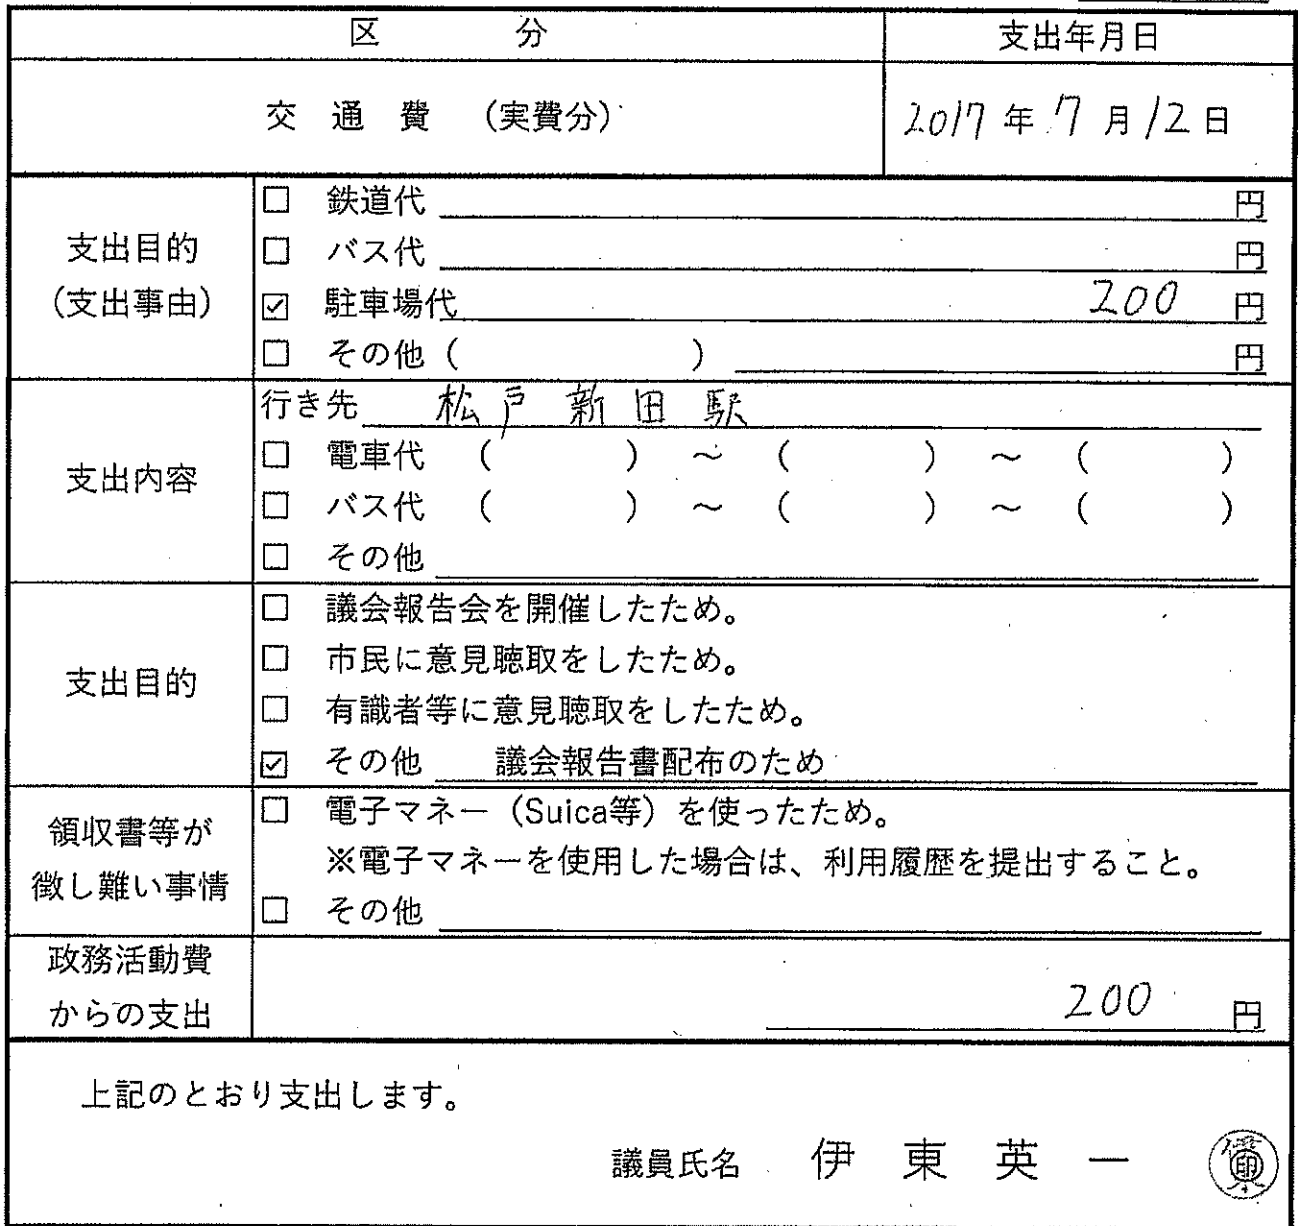 区 分 支出年月日
交 通 費 (実費分) 2017 年 7 月 12 日
支出目的
(支出事由)
□ 鉄道代 円
□ バス代 円
☑ 駐車場代 200 円
□ その他 ( ) 円
支出内容
行き先 松戸新田駅
□ 電車代 ( ) ~ ( ) ~ ( )
□ バス代 ( ) ~ ( ) ~ ( )
□ その他
支出目的
□ 議会報告会を開催したため。
□ 市民に意見聴取をしたため。
□ 有識者等に意見聴取をしたため。
☑ その他 議会報告書配布のため
領収書等が
徴し難い事情
□ 電子マネー(Suica等)を使ったため。
※電子マネーを使用した場合は、利用履歴を提出すること。
□ その他
政務活動費
からの支出
200 円
上記のとおり支出します。
議員氏名 伊 東 英 一 印